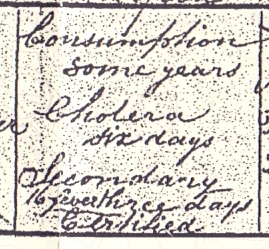 Consumption
some years
Cholera
six days
Secondary
Fever three days
Certified